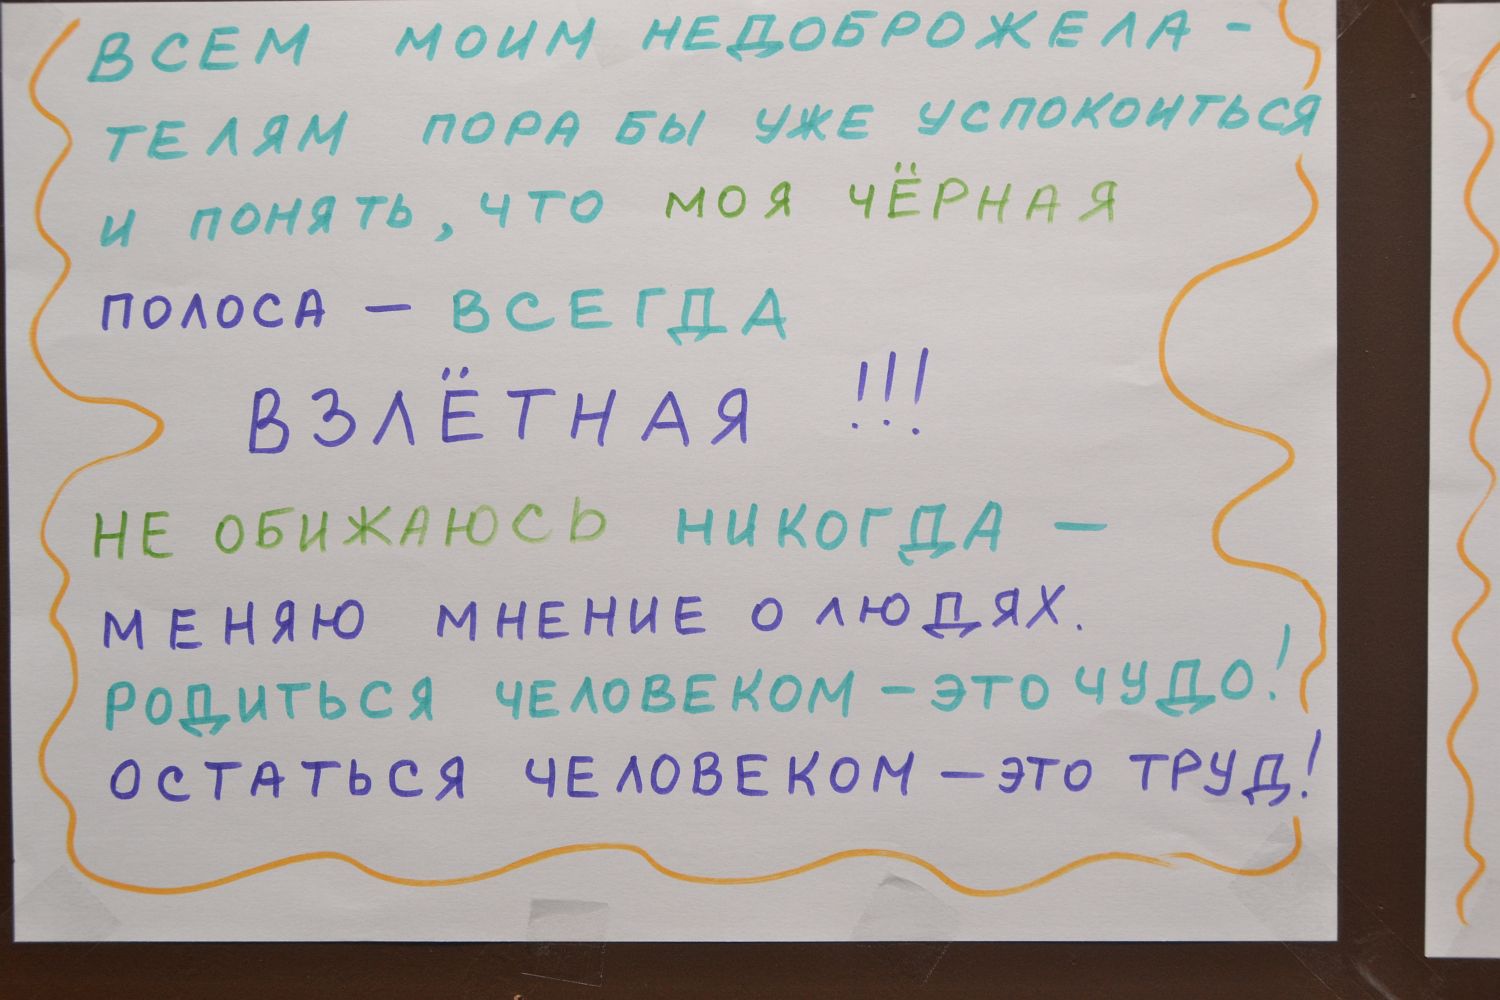 ВСЕМ МОИМ НЕДОБРОЖЕЛА -
ТЕЛЯМ ПОРА БЫ УЖЕ УСПОКОИТЬСЯ
И ПОНЯТЬ, ЧТО МОЯ ЧЁРНАЯ
ПОЛОСА — ВСЕГДА
ВЗЛЁТНАЯ !!!
НЕ ОБИЖАЮСЬ НИКОГДА —
МЕНЯЮ МНЕНИЕ О ЛЮДЯХ.
РОДИТЬСЯ ЧЕЛОВЕКОМ – ЭТО ЧУДО!
ОСТАТЬСЯ ЧЕЛОВЕКОМ – ЭТО ТРУД!